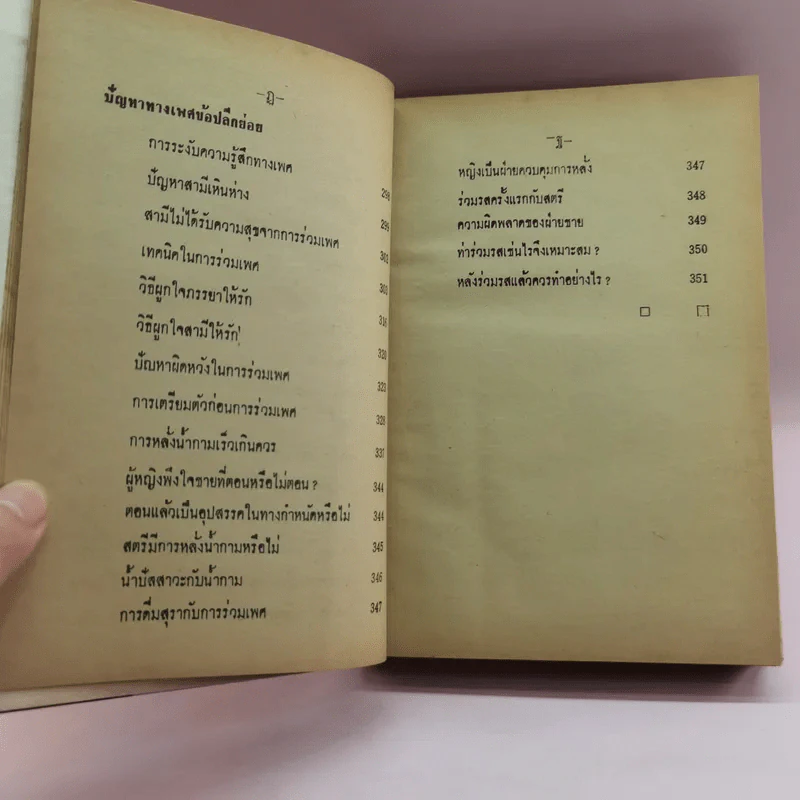 –ฎ–
ปัญหาทางเพศข้อปลีกย่อย
การระงับความรู้สึกทางเพศ
ปัญหาสามีเหินห่าง 298
สามีไม่ได้รับความสุขจากการร่วมเพศ 299
เทคนิคในการร่วมเพศ 302
วิธีผูกใจภรรยาให้รัก 303
วิธีผูกใจสามีให้รัก 316
ปัญหาผิดหวังในการร่วมเพศ 320
การเตรียมตัวก่อนการร่วมเพศ 323
การหลั่งน้ำกามเร็วเกินควร 328
ผู้หญิงพึงใจชายที่ตอนหรือไม่ตอน ? 337
ตอนแล้วเป็นอุปสรรคในทางกำหนัดหรือไม่ 344
สตรีมีการหลั่งน้ำกามหรือไม่ 344
น้ำปัสสาวะกับน้ำกาม 345
การดื่มสุรากับการร่วมเพศ 346
347
–ฐ–
หญิงเป็นฝ่ายควบคุมการหลั่ง 347
ร่วมรสครั้งแรกกับสตรี 348
ความผิดพลาดของฝ่ายชาย 349
ท่าร่วมรสเช่นไรจึงเหมาะสม ? 350
หลังร่วมรสแล้วควรทำอย่างไร ? 351